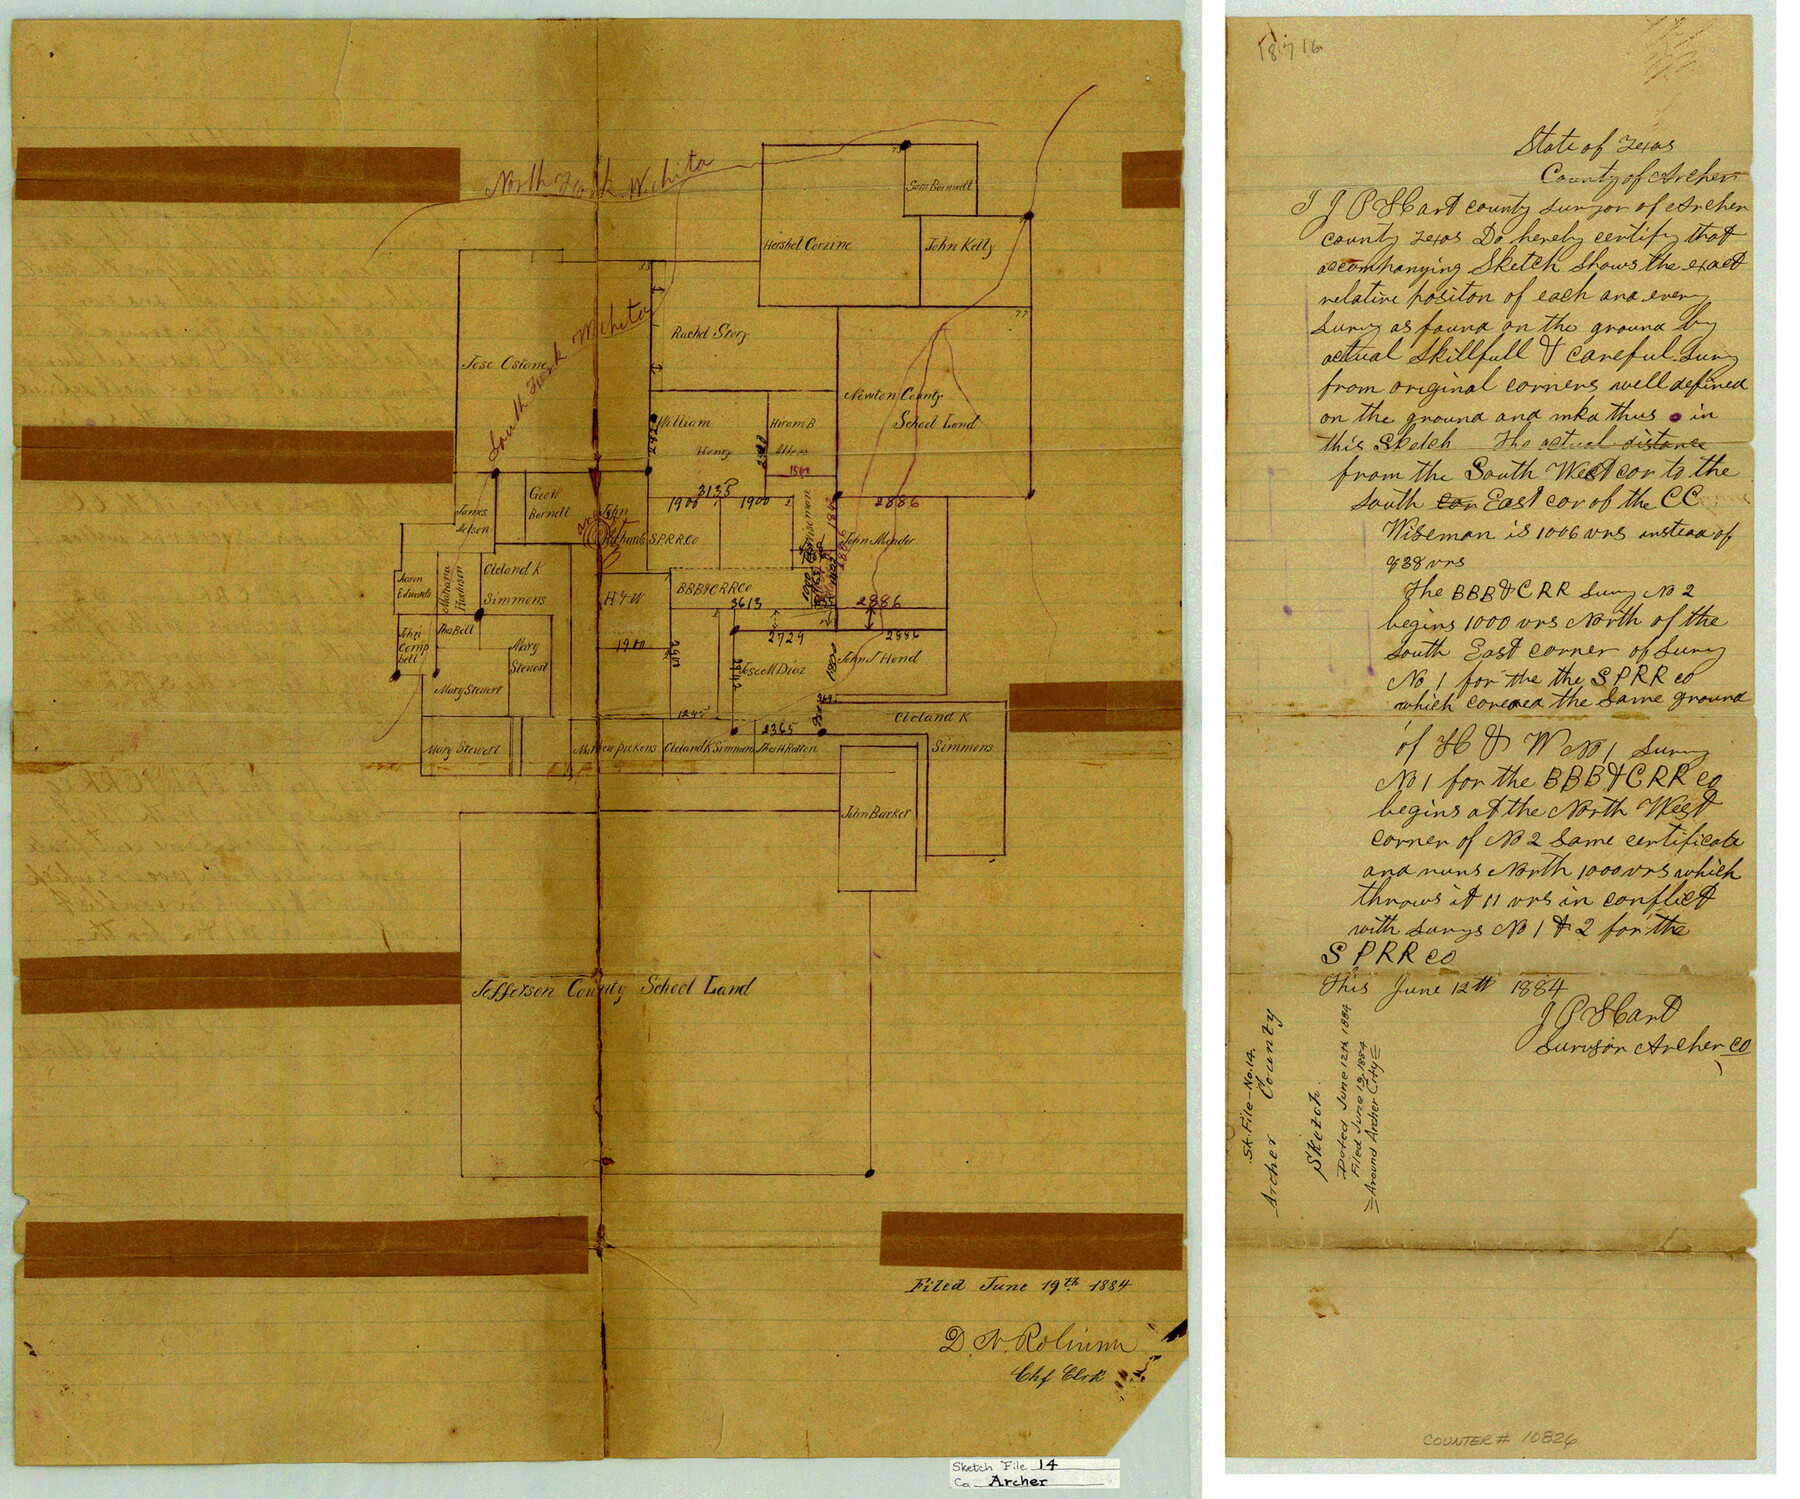 North Fork Wichita
South Fork Wichita
Sam Barnett
Hershel Corzine
John Kelly
77
Rachel Story
Jose
Newton County
School Land
William
Henry
Hiram B
Allen
1500
3135
1900
1900
2886
James
Nelson
Geo W
Barnett
John
S.P.R.R.Co
John Meador
Cleland K
Simmons
Aaron
Edwards
BBB&CRRCo
3613
2886
H & W
John
Camp
bell
Tho Bell
Mary
Stewart
1900
2729
2886
Jose M Diaz
John J Hond
Mary Stewart
1245
Cleland K
Simmons
2365
Mary Stewert
Cleland K Simmons
John Barker
Jefferson County School Land
Filed June 19th 1884
D. N. Robinson
Chf Clrk
Sketch File 14
Co. Archer
State of Texas
County of Archer
I J P Hart county survyor of Archer
county Texas Do hereby certify that
accompanying Sketch Shows the exact
relative positon of each and every
Survy as found on the ground by
actual Skillfull & careful Survy
from original corners well defined
on the ground and mkd thus in
this Sketch The actual distance
from the South West cor to the
South cor East cor of the CC
Wiseman is 1006 vrs instead of
938 vrs
The BBB&CRR Survy No 2
begins 1000 vrs North of the
South East corner of Survy
No 1 for the the SPRR co
which covered the Same ground
of H & W No 1 Survy
No 1 for the BBB&CRR co
begins at the North West
corner of No 2 Same certificate
and runs North 1000 vrs which
throws it 11 vrs in conflict
with Survys No 1 & 2 for the
SPRR co
This June 12th 1884
J P Hart
Survyor Archer co
Sk. File - No. 14.
Archer County
Sketch.
Dated June 12th 1884
Filed June 19. 1884
= Around Archer City =
COUNTER # 10826